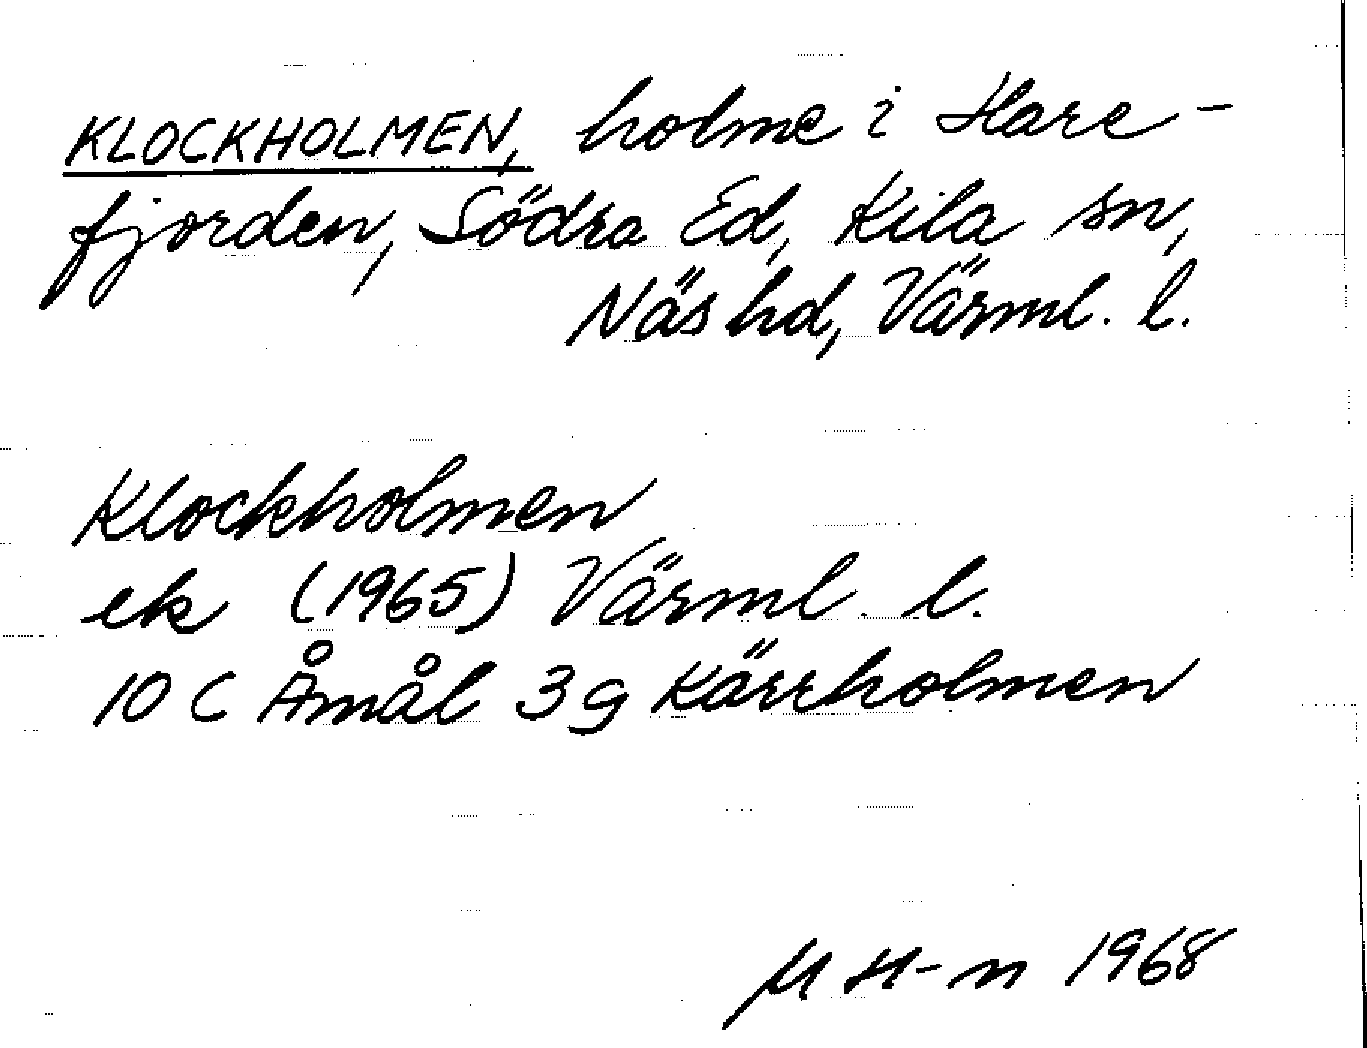 KLOCKHOLMEN, holme i Hare-
fjorden, Södra Ed, Kila sn,
Näs hd, Värml. l.
Klockholmen
ek (1965) Värml. l.
10 C Åmål 3 g Kärrholmen
M H-n 1968